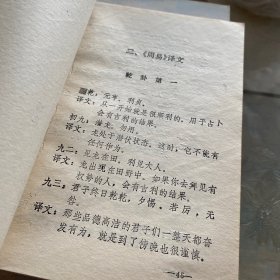 二、《周易》译文
乾卦第一
乾，元亨，利贞。
译文：从一开始就是很顺利的，用于占卜
会有吉利的结果。
初九：潜龙，勿用。
译文：龙处于潜伏状态。这时，它不能有
任何作为。
九二：见龙在田，利见大人。
译文：龙出现在田野中。如果你去拜见有
权势的人，会有吉利的结果。
九三：君子终日乾乾，夕惕。若厉，无
咎。
译文：那些品德高洁的君子们一整天都奋
发有为，就是到了傍晚也很谨慎。